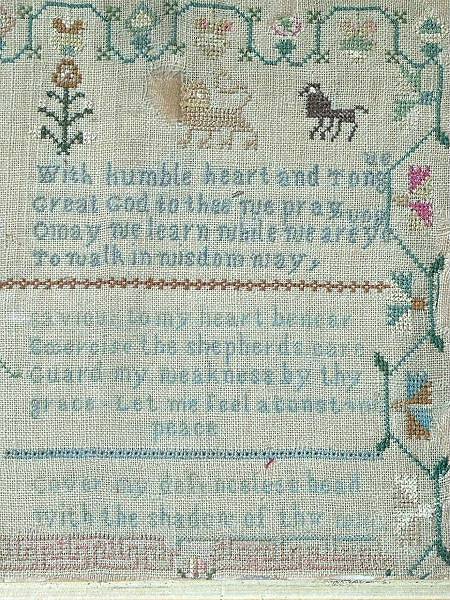 With humble heart and Tongue
Great God to thee We pray
O may We learn While We are young
To walk in wisdom way,
to my heart be near
the shepherds care
Guard my weakness by thy
grace Let me feel a constant
peace
my head
With the shadow of thy